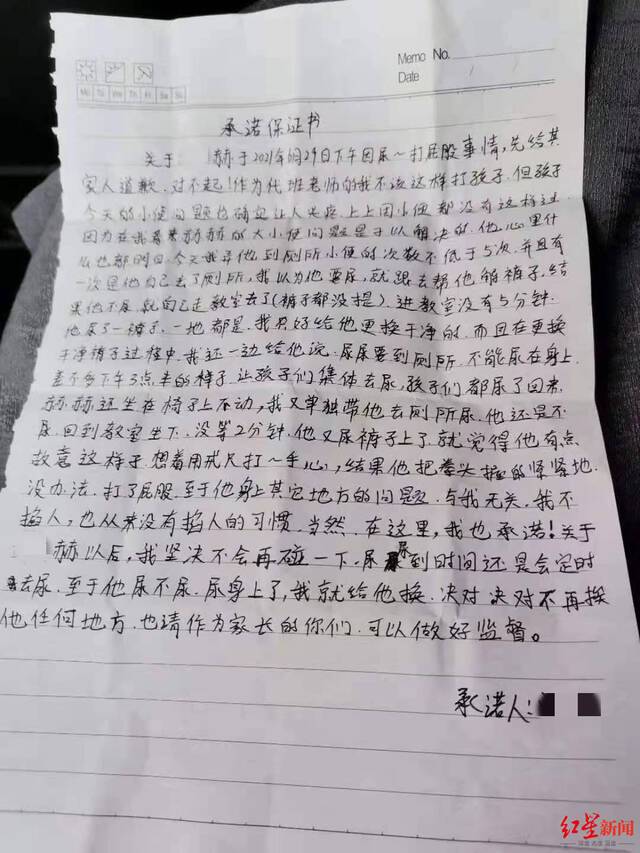 Memo No.
Date
Mo Tu We Th Fr Sa Su
承诺保证书
关于 赫于2021年6月29日下午因尿~打屁股事情，先给其
家人道歉，对不起！作为代班老师的我不该这样打孩子.但孩子
今天的小便问题也确实让人头疼.上上周小便都没有这样过.
因为在我看来赫赫的大小便问题是可以解决的.他心里什
么也都明白.今天我寻他到厕所小便的次数不低于5次.并且有
一次是他自己去了厕所，我以为他要尿，就跟去帮他脱裤子.结
果他不尿.就自己走教室去了(裤子都没提).进教室没有5分钟.
他尿了一裤子.一地都是.我只好给他更换干净的.而且在更换
干净裤子过程中.我还一边给他说.尿尿要到厕所.不能尿在身上.
差不多下午3点半的样子.让孩子们集体去尿，孩子们都尿了回来.
赫赫还坐在椅子上不动，我又单独带他去厕所尿.他还是不
尿.回到教室坐下.没等2分钟.他又尿裤子上了.就觉得他有点
故意这样子.想着用戒尺打~手心，结果他把拳头握的紧紧地.
没办法.打了屁股.至于他身上其它地方的问题.与我无关.我不
掐人，也从来没有掐人的习惯.当然.在这里，我也承诺！关于
赫以后，我坚决不会再碰一下.尿尿到时间还是会定时
去尿.至于他尿不尿.尿身上了，我就给他换.决对决对不再挨
他任何地方.也请作为家长的你们.可以做好监督。
承诺人：
红星新闻